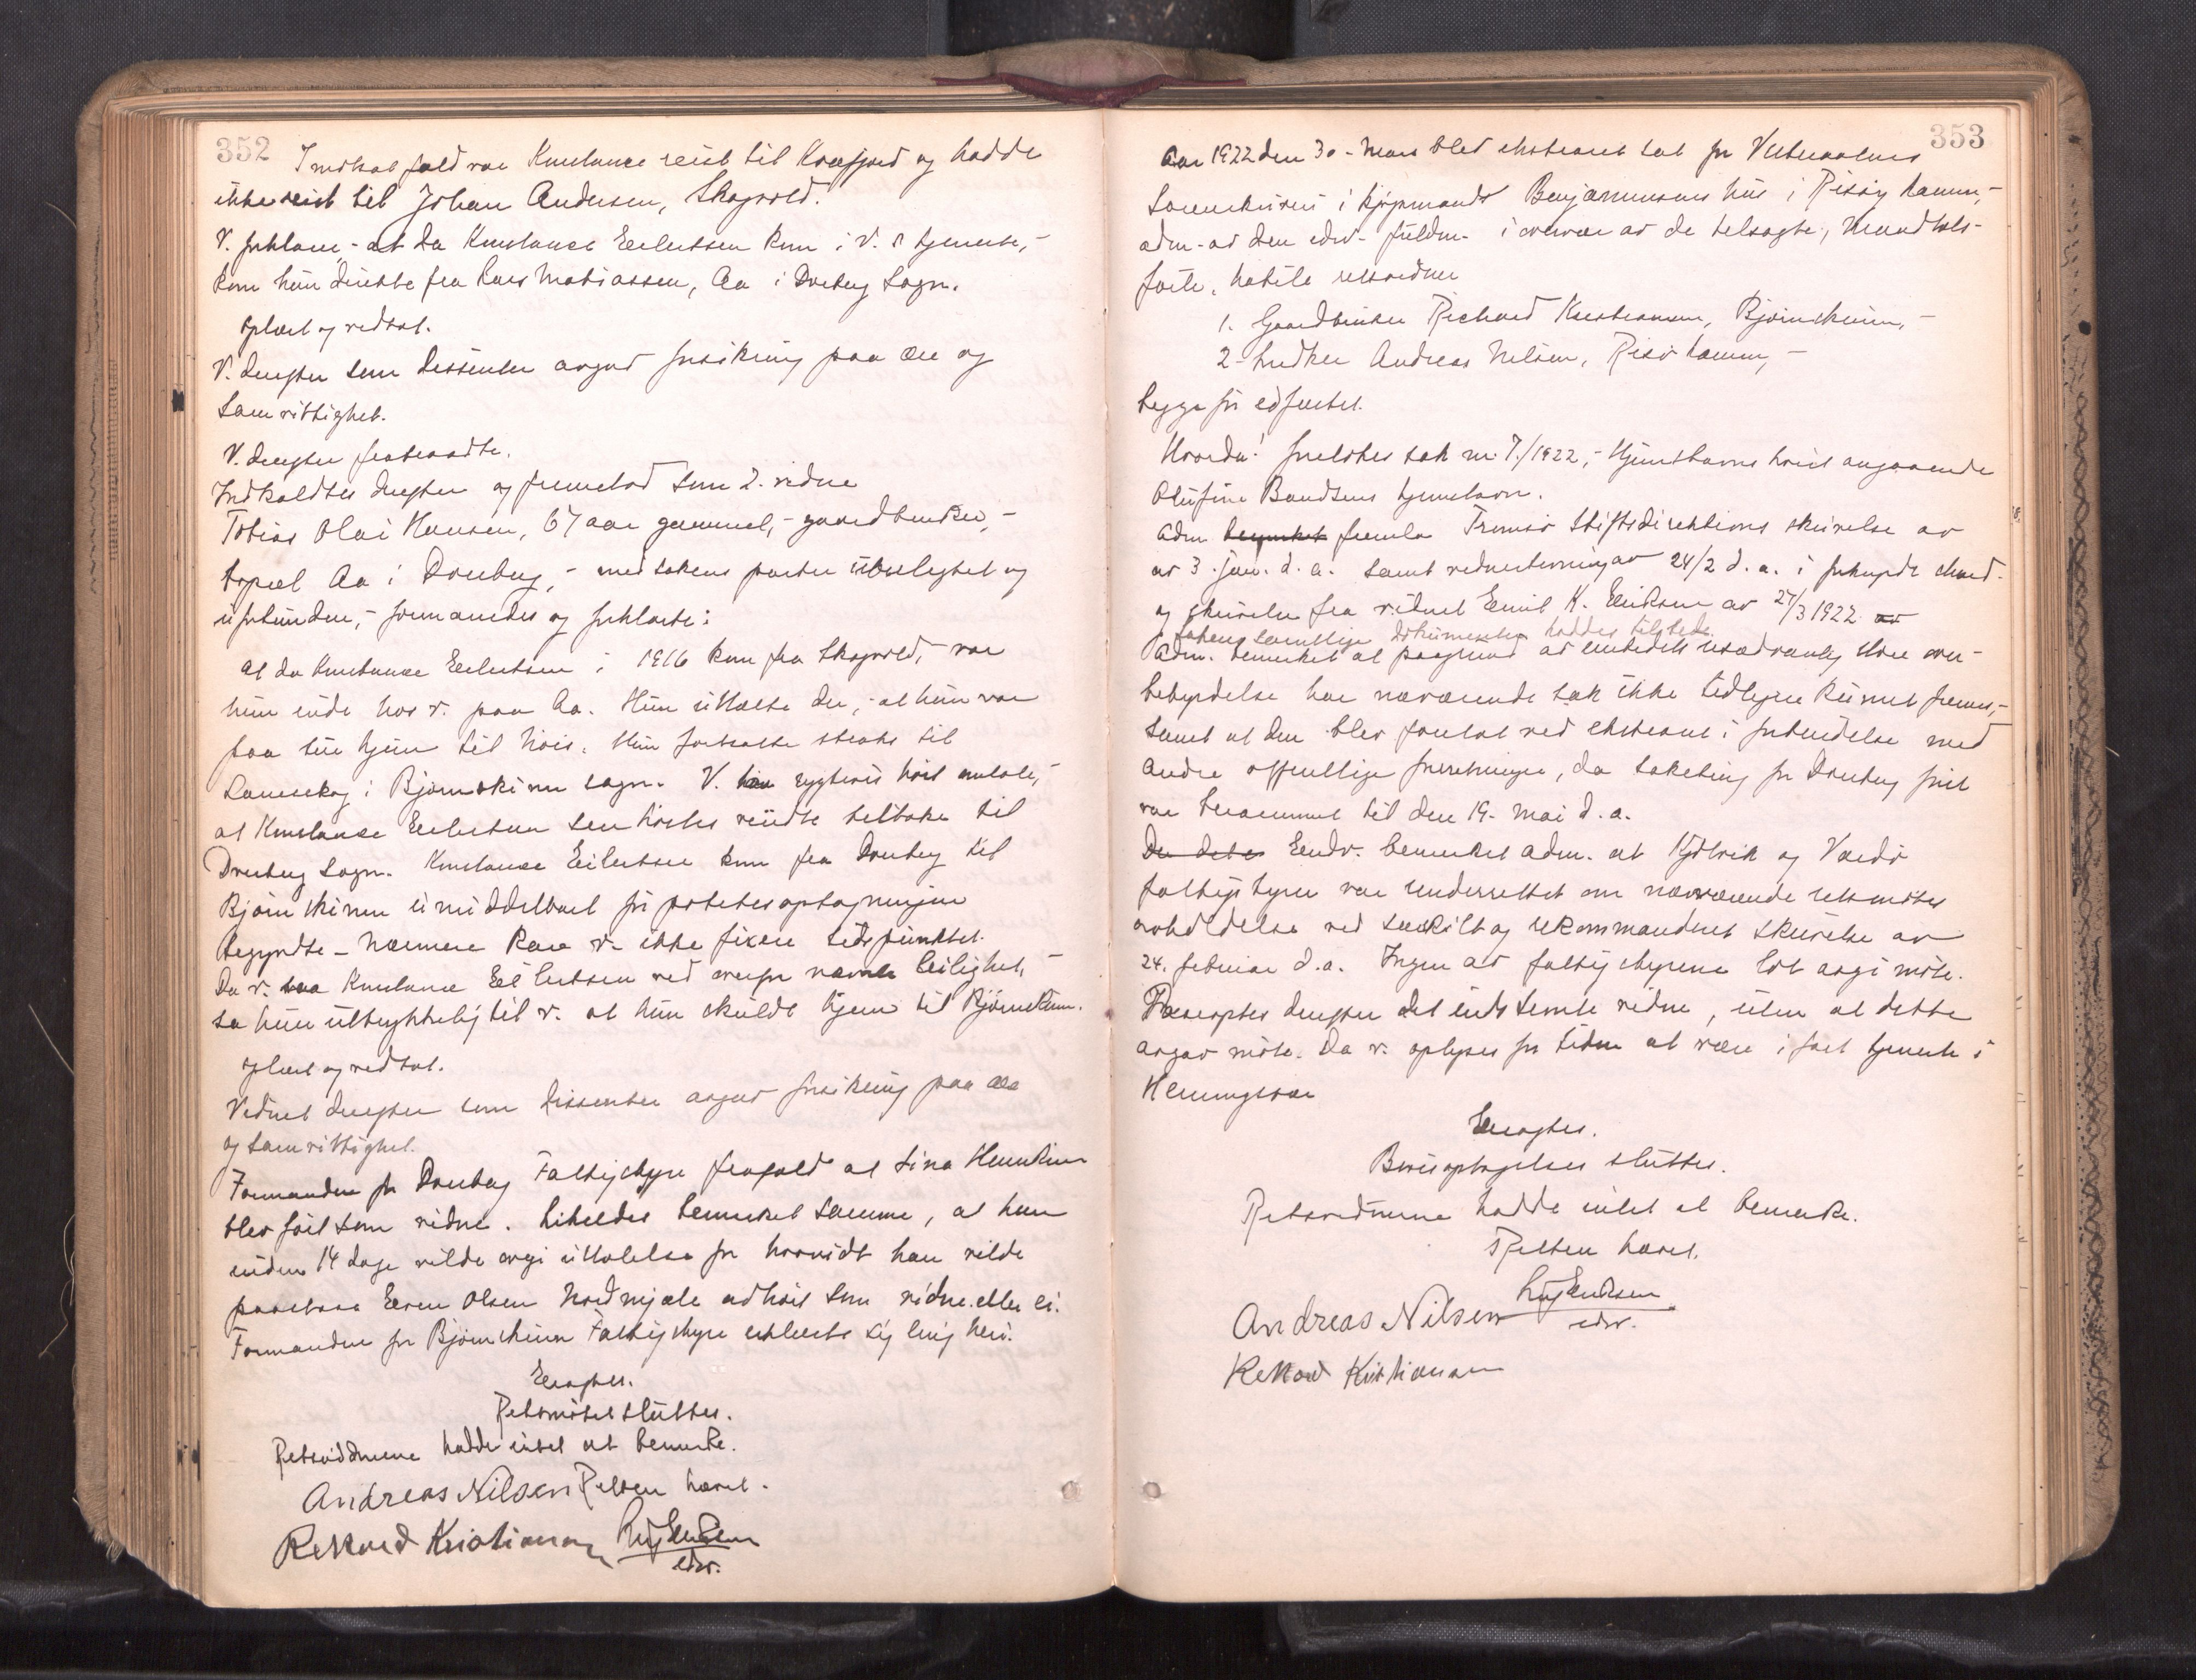 352
I motsat fald var Konstance reist til Kvæfjord og hadde
ikke reist til Johan Andersen, Skogvold.
V. forklarer, at da Konstance Eilertsen kom i v.s tjeneste,-
kom hun direkte fra Lars Matiassen, Aa i Dverberg Sogn.
Oplæst og vedtat.
V. derefter som dissenter avgav forsikring paa ære og
samvittighet.
V. derefter fratraadte.
Indkaldtes derefter og fremstod som 2. vidne
Tobias Olai Hansen, 67 aar gammel,- gaardbruker,-
bopæl Aa i Dverberg,- med sakens parter ubeslegtet og
uforbunden,- formanedes og forklarte:
at da Konstance Eilertsen i 1916 kom fra Skogvold,- var
hun inde hos v. paa Aa. Hun uttalte der,- at hun var
paa tur hjem til hvis. Hun fortsatte straks til
Lanesskog i Bjørnskinn sogn. V. har rygtevis hørt omtale,-
at Konstance Eilertsen sen høstes vendte tilbake til
Dverberg Sogn. Konstance Eilertsen kom fra Dverberg til
Bjørnskinn umiddelbart før potetesoptagningen
begyndte - Nærmere kan v. ikke fixere tidspunktet.
Da v. saa Konstance Eilertsen ved ovenfor nævnte leilighet,-
sa hun uttrykkelig til v. at hun skulde hjem til Bjørnskinn.
Oplæst og vedtat.
Vidnet derefter som dissenter avgav forsikring paa ære
og samvittighet.
Formanden for Dverberg Fattigstyre frafaldt at Sina Henriksen
blev ført som vidne. Likeledes bemerket samme, at han
inden 14 dage vilde avgi uttalelse for hvorvidt han vilde
paastaa Eeven Olsen Nordmjele avhørt som vidne eller ei.
Formanden for Bjørnskinn Fattigstyre erklærte sig enig heri.
Eragtes.
Retsmøtet sluttes.
Retsvidnerne hadde intet at bemerke.
Andreas Nilsen Retten hævet.
Rekard Kristiansen
edsv.
353
Aar 1922 den 30. Mars blev ekstraret sat for Vesteraalens
Sorenskriveri i kjøpmand Benjaminsens hus i Risøyhamn,-
adm. av den edsv. fuldm. i overvær av de tilsagte, mandtals-
førte, habile retsvidner
1. Gaardbruker Richard Kristiansen, Bjørnskinn,-
2. Snedker Andreas Nilsen, Risøhamn,-
begge før edfæstet.
Hvorda! foretokes sak nr. 7./1922,- Hjemstavnsforhør angaaende
Olufine Bendtsens hjemstavn.
Adm. bemerket fremla Tromsø Stiftsdirektions skrivelse av
av 3. jan. d.a. samt vidnestevning av 24/2 d.a. i forkyndt stand.
og skrivelse fra vidnet Emil K. Eriksen av 27/3 1922. av
Sakens samtlige dokumenter haddes tilstede.
Adm. bemerket at paagrund av embedets usædvanlig store over-
bebyrdelse har nærværende sak ikke tidligere kunnet fremmes,-
samt at den blev foretat ved ekstraret i forbindelse med
andre offentlige forretninger, da saketing for Dverberg først
var berammet til den 19. mai d.a.
Der detes Endv. bemerket adm. at Kjelvik og Vardø
fattigstyrer var underrettet om nærværende retsmøtes
avholdelse ved særskilt og rekommanderet skrivelse av
24. februar d.a. Ingen av fattigstyrene lot avgi møte.
Paaroptes derefter det indstevnte vidne, uten at dette
avgav møte. Da v. oplyses for tiden at være i fast tjeneste i
Henningsvær
Eragtes.
Bevisoptagelsen sluttes.
Retsvidnerne hadde intet at bemerke.
Retten hævet.
Andreas Nilsen
edsv.
Rekard Kristiansen